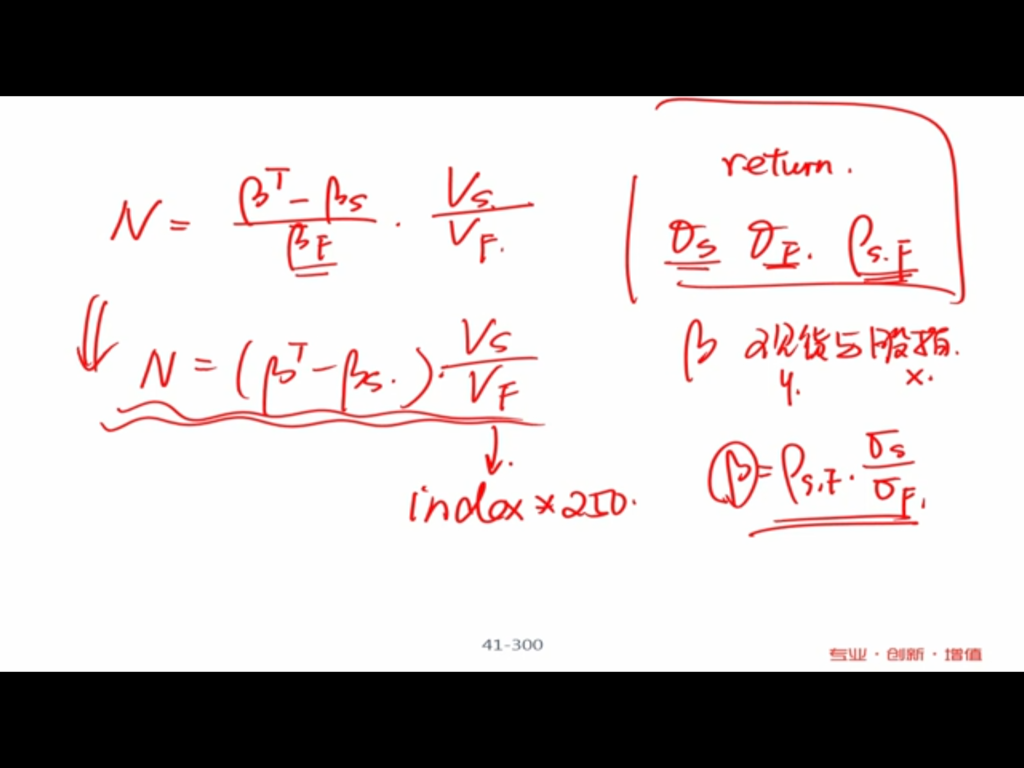 N = (β^T - βs)/βF · Vs./VF.
N = (β^T - βs.)·Vs/VF
index × 250.
return.
σs σF. ρs.F
β 现货与股指.
y. x.
β = ρs,F · σs/σF.
41-300
专业·创新·增值